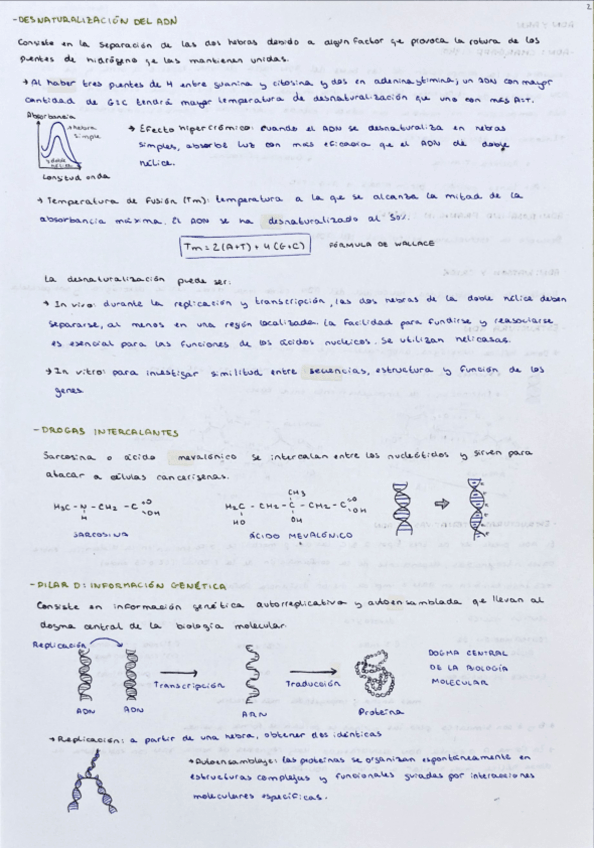 2
-DESNATURALIZACIÓN DEL ADN
Consiste en la separación de las dos hebras debido a algún factor qe provoca la rotura de los
puentes de hidrógeno qe las mantienen unidas.
→ Al haber tres puentes de H entre guanina y citosina y dos en adenina y timina; un ADN con mayor
cantidad de G≡C tendrá mayor temperatura de desnaturalización que uno con más A=T.
Absorbancia
→hebra
simple
→doble
hélice
Longitud onda
→ Efecto hipercrómico: cuando el ADN se desnaturaliza en hebras
simples, absorbe luz con más eficacia que el ADN de doble
hélice.
→ Temperatura de fusión (Tm): temperatura a la qe se alcanza la mitad de la
absorbancia máxima. El ADN se ha desnaturalizado al 50%.
Tm = 2(A+T) + 4(G+C) FÓRMULA DE WALLACE
La desnaturalización puede ser:
→ In vivo: durante la replicación y transcripción, las dos hebras de la doble hélice deben
separarse, al menos en una región localizada. La facilidad para fundirse y reasociarse
es esencial para las funciones de los ácidos nucleicos. Se utilizan helicasas.
→ In vitro: para investigar similitud entre secuencias, estructura y función de los
genes.
-DROGAS INTERCALANTES
Sarcosina o ácido mevalónico se intercalan entre los nucleótidos y sirven para
atacar a células cancerígenas.
H₃C - N - CH₂ - C =O -OH
H
SARCOSINA
CH₃
H₂C - CH₂ - C - CH₂ - C =O -OH
HO OH
ÁCIDO MEVALÓNICO
-PILAR D: INFORMACIÓN GENÉTICA
Consiste en información genética autorreplicativa y autoensamblada que llevan al
dogma central de la biología molecular.
Replicación
ADN ADN
Transcripción
ARN
Traducción
Proteína
DOGMA CENTRAL
DE LA BIOLOGÍA
MOLECULAR
→ Replicación: a partir de una hebra, obtener dos idénticas
→ Autoensamblaje: las proteínas se organizan espontáneamente en
estructuras complejas y funcionales guiadas por interacciones
moleculares específicas.